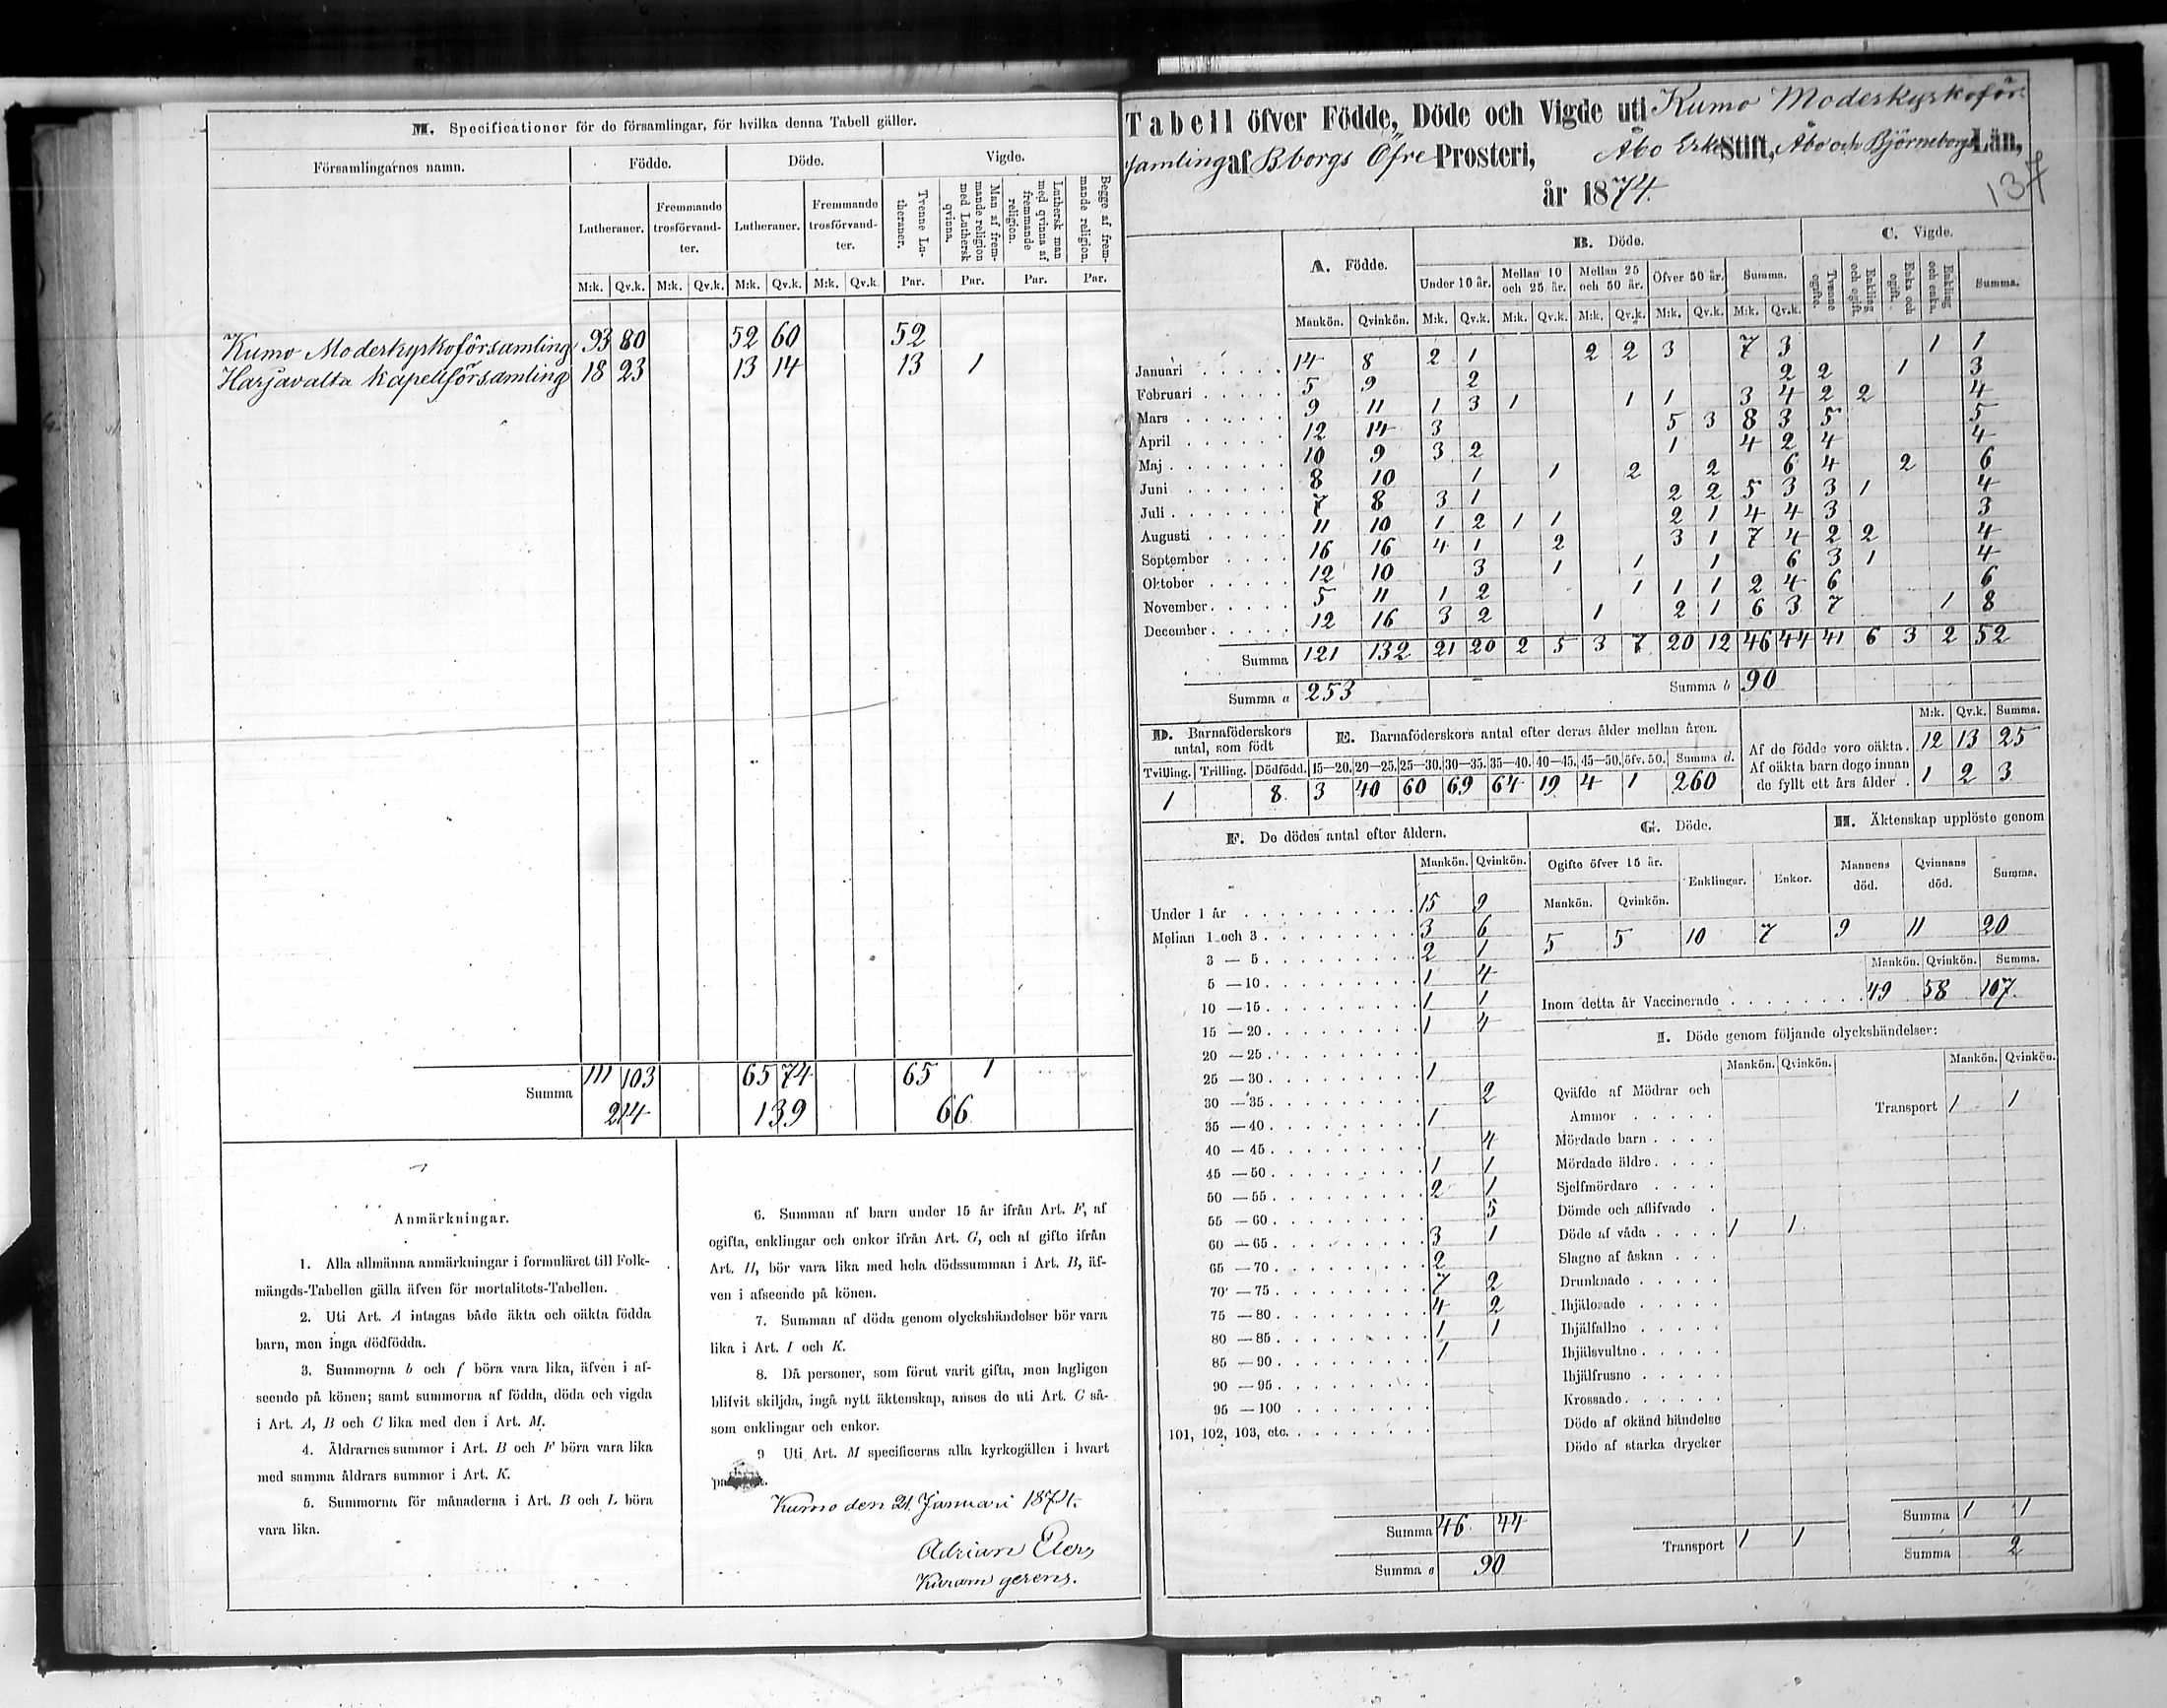 M. Specificationer för de församlingar, för hvilka denna Tabell gäller.
Församlingarnes namn. Födde. Döde. Vigde.
Lutheraner. Fremmande trosförvandter. Lutheraner. Fremmande trosförvandter. Tvenne Lutheraner. Man af fremmande religion med Luthersk qvinna. Luthersk man med qvinna af fremmande religion. Begge af fremmande religion.
M:k. Qv.k. M:k. Qv.k. M:k. Qv.k. M:k. Qv.k. Par. Par. Par. Par.
Kumo Moderkyrkoförsamling 93 80 52 60 52
Harjavalta Kapellförsamling 18 23 13 14 13 1
Summa 111 103 65 74 65 1
214 139 66
Anmärkningar.
1. Alla allmänna anmärkningar i formuläret till Folk-
mängds-Tabellen gälla äfven för mortalitets-Tabellen.
2. Uti Art. A intagas både äkta och oäkta födda
barn, men inga dödfödda.
3. Summorna b och f böra vara lika, äfven i af-
seende på könen; samt summorna af födda, döda och vigda
i Art. A, B och C lika med den i Art. M.
4. Åldrarnes summor i Art. B och F böra vara lika
med samma åldrars summor i Art. K.
5. Summorna för månaderna i Art. B och L böra
vara lika.
6. Summan af barn under 15 år ifrån Art. F, af
ogifta, enklingar och enkor ifrån Art. G, och af gifte ifrån
Art. H, bör vara lika med hela dödssumman i Art. B, äf-
ven i afseende på könen.
7. Summan af döda genom olyckshändelser bör vara
lika i Art. I och K.
8. Då personer, som förut varit gifta, men lagligen
blifvit skiljda, ingå nytt äktenskap, anses de uti Art. C så-
som enklingar och enkor.
9 Uti Art. M specificeras alla kyrkogällen i hvart
Kumo den 21 Januari 1874.
Adrian
Kuram gerens.
Tabell öfver Födde, Döde och Vigde uti Kumo Moderkyrkoför-
samling af Bborgs Öfre Prosteri, Åbo Erke Stift, Åbo och Björneborgs Län,
år 1874.
137
A. Födde. B. Döde. C. Vigde.
Under 10 år. Mellan 10 och 25 år. Mellan 25 och 50 år. Öfver 50 år. Summa. Tvenne ogifte. Enkling och ogift. Enka och ogift. Enkling och enka. Summa.
Mankön. Qvinkön. M:k. Qv.k. M:k. Qv.k. M:k. Qv.k. M:k. Qv.k. M:k. Qv.k.
Januari 14 8 2 1 2 2 3 7 3 1 1
Februari 5 9 2 2 2 1 3
Mars 9 11 1 3 1 1 1 3 4 2 2 4
April 12 14 3 5 3 8 3 5 5
Maj 10 9 3 2 1 4 2 4 4
Juni 8 10 1 1 2 2 6 4 2 6
Juli 7 8 3 1 2 2 5 3 3 1 4
Augusti 11 10 1 2 1 1 2 1 4 4 3 3
September 16 16 4 1 2 3 1 7 4 2 2 4
Oktober 12 10 3 1 1 1 6 3 1 4
November 5 11 1 2 1 1 1 2 4 6 6
December 12 16 3 2 1 2 1 6 3 7 1 8
Summa 121 132 21 20 2 5 3 7 20 12 46 44 41 6 3 2 52
Summa a 253 Summa b 90
D. Barnaföderskors antal, som födt
Tvilling. Trilling. Dödfödd.
1 8
E. Barnaföderskors antal efter deras ålder mellan åren.
15—20. 20—25. 25—30. 30—35. 35—40. 40—45. 45—50. öfv. 50. Summa d.
3 40 60 69 64 19 4 1 260
M:k. Qv.k. Summa.
Af de födde voro oäkta. 12 13 25
Af oäkta barn dogo innan
de fyllt ett års ålder . 1 2 3
F. De dödes antal efter åldern.
Mankön. Qvinkön.
Under 1 år 15 9
Mellan 1 och 3 3 6
3 — 5 2 1
5 — 10 1 4
10 — 15 1 1
15 — 20 1 4
20 — 25
25 — 30 1
30 — 35 2
35 — 40 1
40 — 45 4
45 — 50 1 1
50 — 55 2 1
55 — 60 5
60 — 65 3 1
65 — 70 2
70 — 75 7 2
75 — 80 4 2
80 — 85 1 1
85 — 90 1
90 — 95
95 — 100
101, 102, 103, etc.
Summa 46 44
Summa e 90
G. Döde.
Ogifte öfver 15 år. Enklingar. Enkor.
Mankön. Qvinkön.
5 5 10 7
H. Äktenskap upplöste genom
Mannens död. Qvinnans död. Summa.
9 11 20
Mankön. Qvinkön. Summa.
Inom detta år Vaccinerade 49 58 107
I. Döde genom följande olyckshändelser:
Mankön. Qvinkön. Mankön. Qvinkön.
Qväfde af Mödrar och
Ammor
Transport 1 1
Mördade barn
Mördade äldre
Sjelfmördare
Dömde och aflifvade
Döde af våda 1 1
Slagne af åskan
Drunknade
Ihjälosade
Ihjälfallne
Ihjälsvultne
Ihjälfrusne
Krossade
Döde af okänd händelse
Döde af starka drycker
Transport 1 1
Summa 1 1
Summa 2